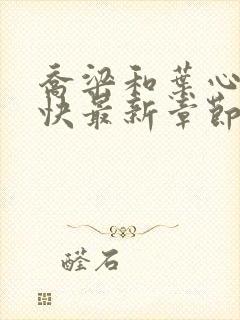 乔梁和叶心
快最新章节
醛石